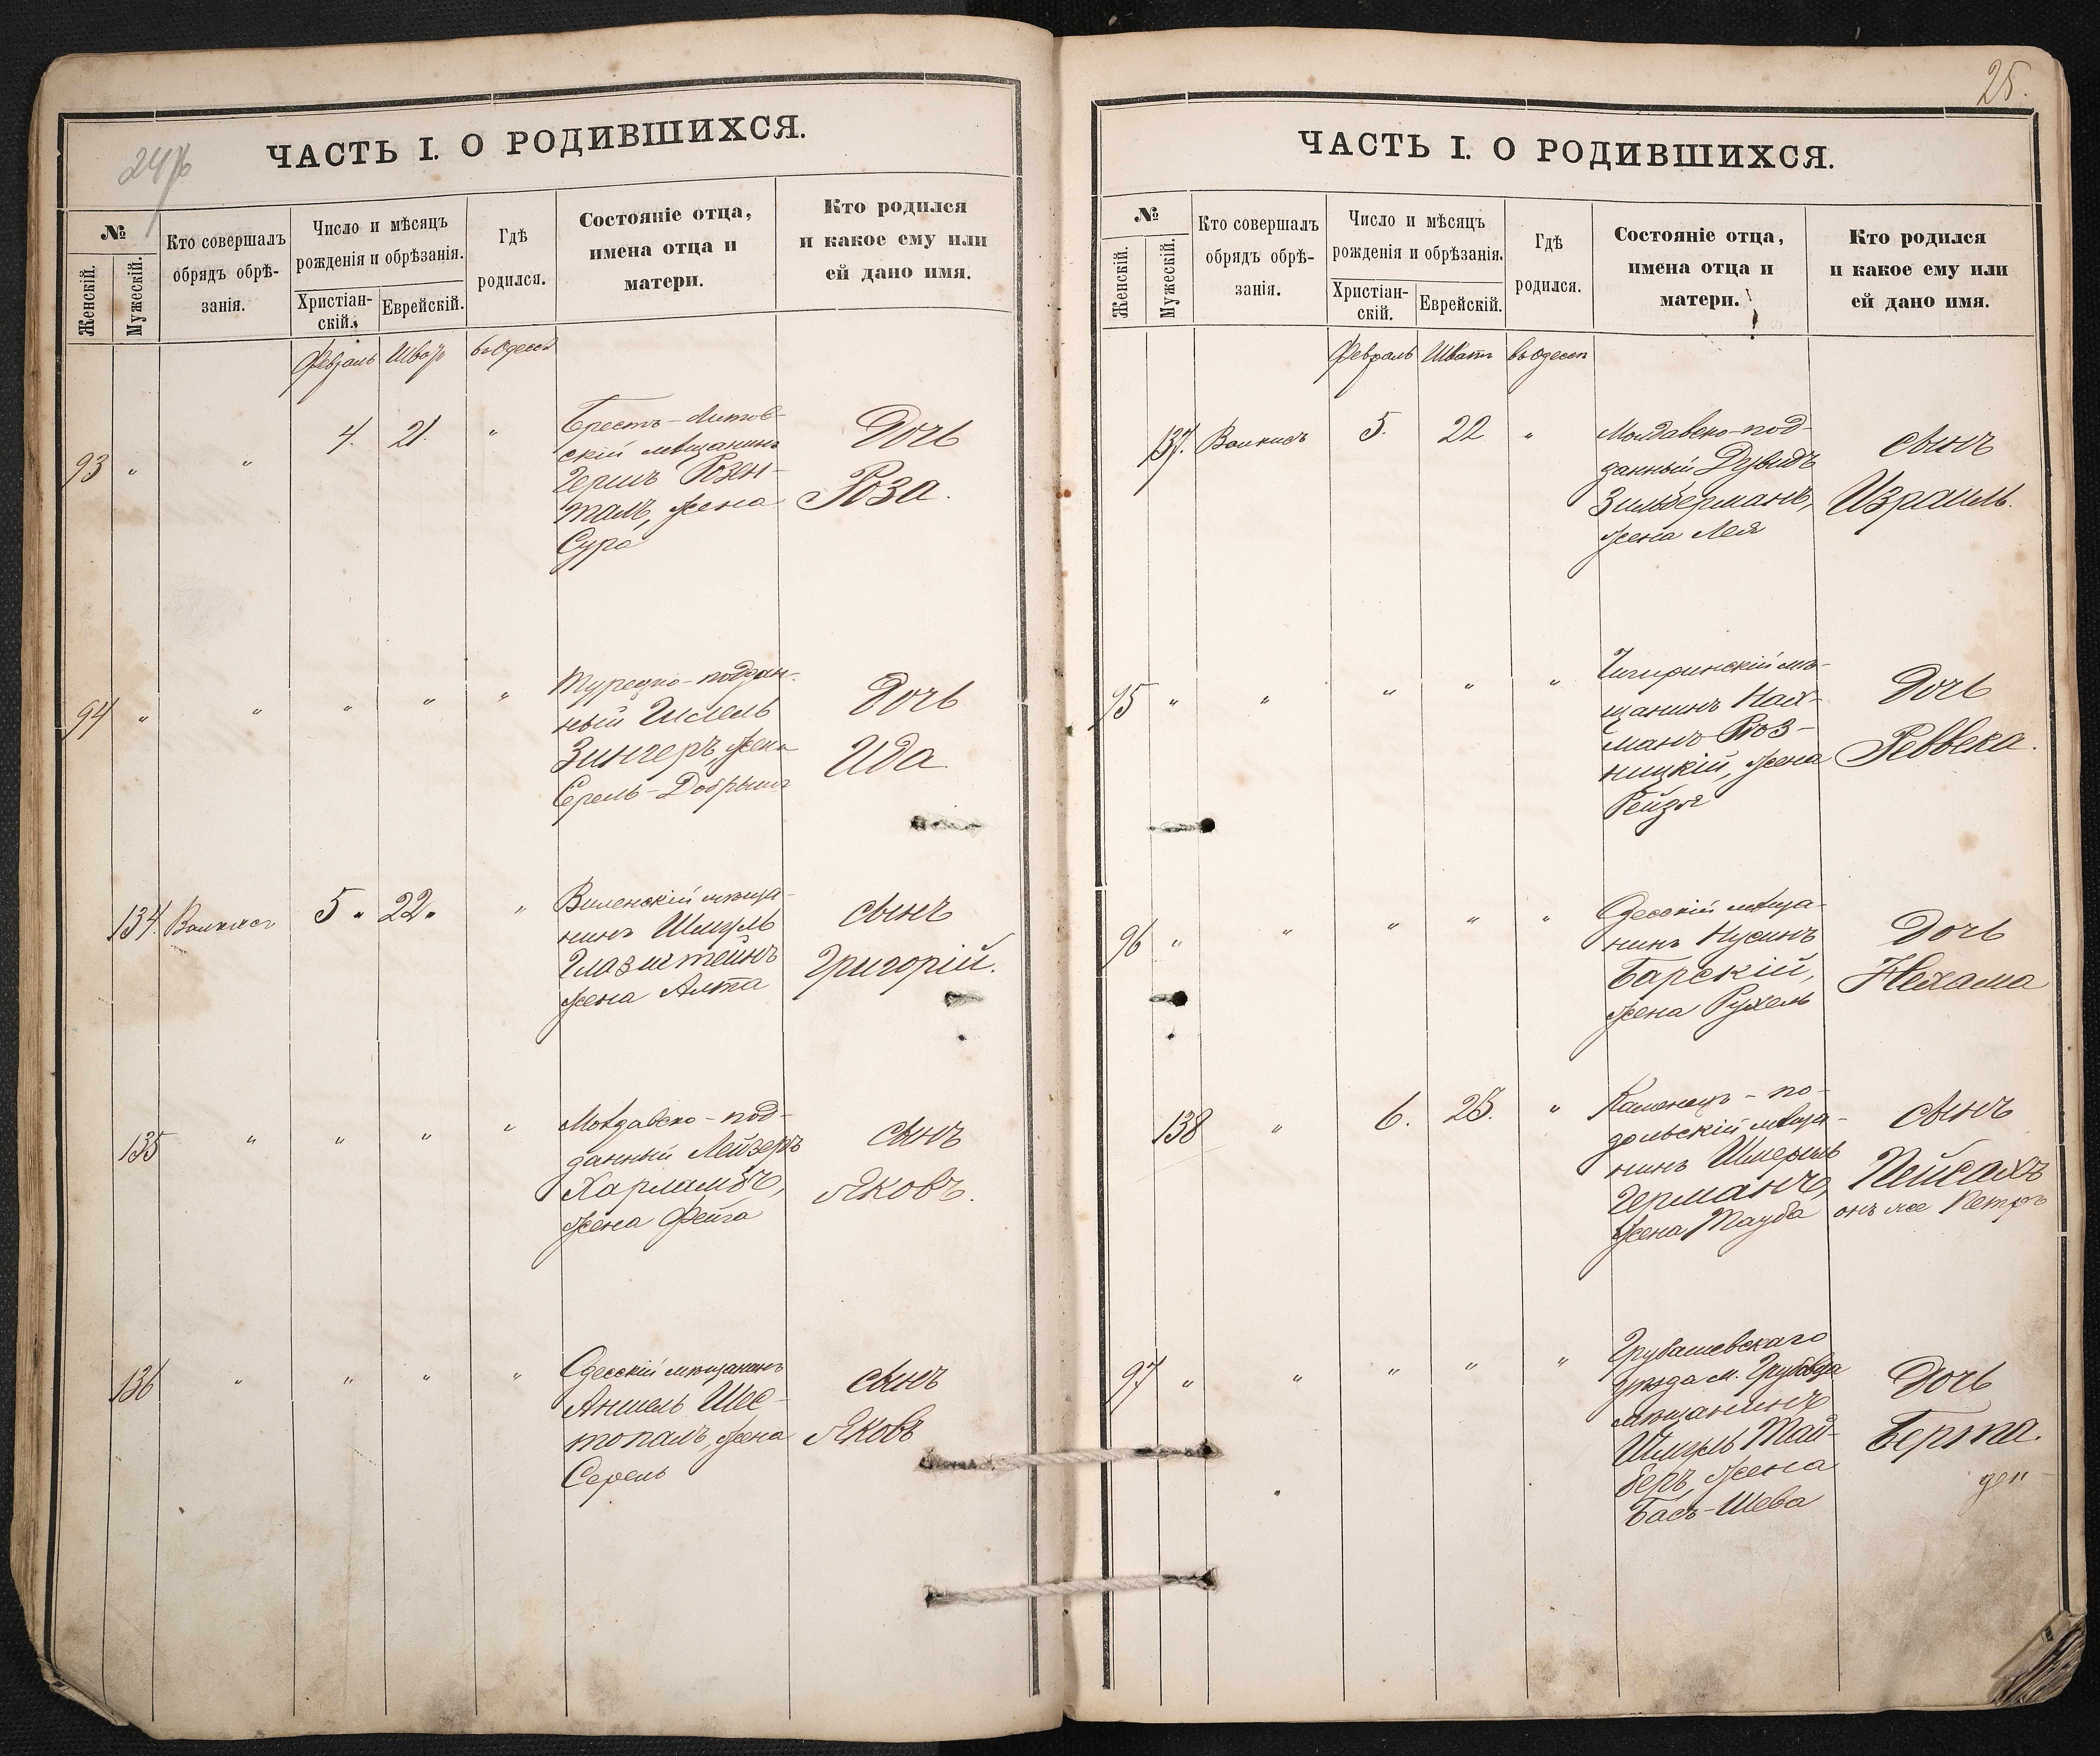 24
ЧАСТЬ I. О РОДИВШИХСЯ.
№
Женскій.
Мужескій.
Кто совершалъ
обрядъ обрѣ-
занія.
Число и мѣсяцъ
рожденія и обрѣзанія.
Христіан-
скій.
Еврейскій.
Гдѣ
родился.
Состояніе отца,
имена отца и
матери.
Кто родился
и какое ему или
ей дано имя.
Февраль Шватъ въ Одессѣ
93 " " 4. 21. "
Брестъ-Литов-
скій мѣщанинъ
Гершъ Розен-
талъ, жена
Сура
Дочь
Роза.
94 " " " " "
Турецко-поддан-
ный
Зингеръ, жена
Серель-Добрыш
Дочь
Ида
134. 5 " 22 " "
Виленскій мѣща-
нинъ Шмуль
Глазштейнъ
жена Алта
сынъ
Григорій.
135 " " " "
Молдавско-под-
данный Лейзеръ
Харламбъ,
жена Фейга
сынъ
Яковъ.
136 " " " "
Одесскій мѣщанинъ
Аншель Шес-
топалъ, жена
Серель
сынъ
Яковъ
25.
ЧАСТЬ I. О РОДИВШИХСЯ.
№
Женскій.
Мужескій.
Кто совершалъ
обрядъ обрѣ-
занія.
Число и мѣсяцъ
рожденія и обрѣзанія.
Христіан-
скій.
Еврейскій.
Гдѣ
родился.
Состояніе отца,
имена отца и
матери.
Кто родился
и какое ему или
ей дано имя.
Февраль Шватъ въ Одессѣ
137. 5. 22 "
Молдавско-под-
данный Дувидъ
Зильберманъ,
жена Лея
сынъ
Израиль.
95 " " " " "
Чигиринскій мѣ-
щанинъ Нах-
манъ Роз-
ницкій, жена
Рейзя
Дочь
Реввека.
96 " " " " "
Одесскій мѣща-
нинъ Нусинъ
Барскій,
жена Рухель
Дочь
Нехама
138 " 6. 23. "
Каменецъ-по-
дольскій мѣща-
нинъ Шмерль
Германъ,
жена Тауба
сынъ
Пейсахъ
онъ же Петръ
97 " " " " "
Грубашевскаго
уѣзда м.
мѣщанинъ
Шмуль Тай-
беръ, жена
Басъ-Шева
Дочь
Берта.